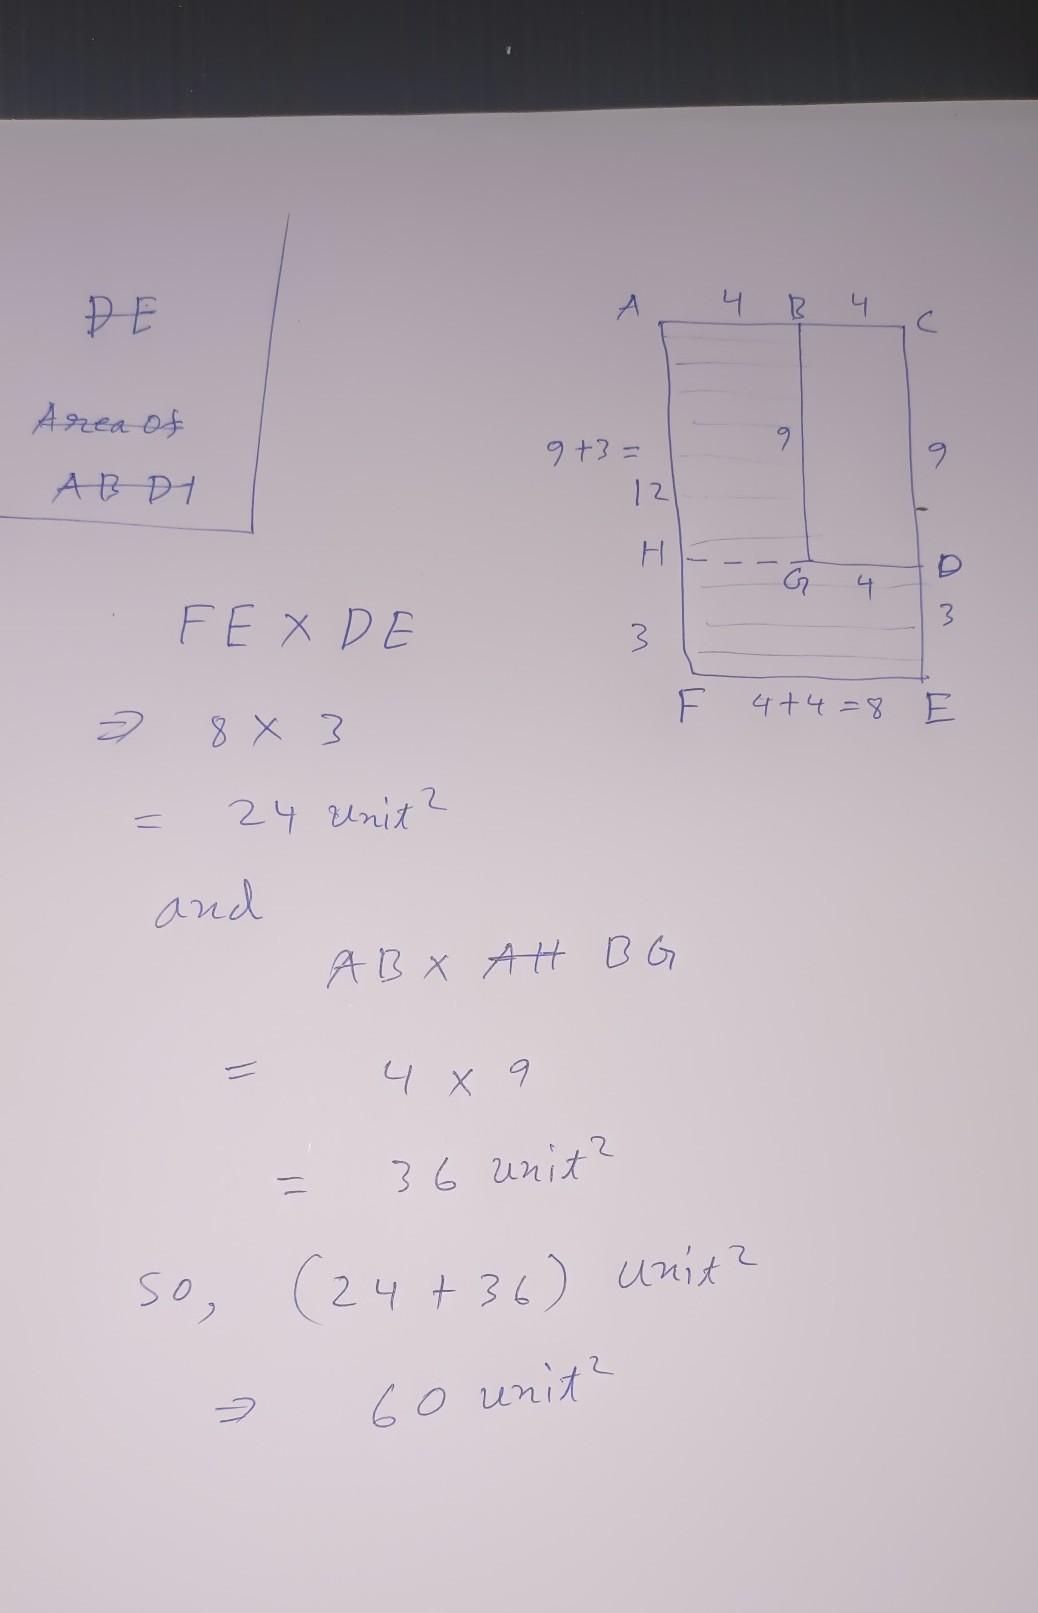 DE
Area of
ABDI
A 4 B 4 C
9
9
9+3=
12
H
G 4 D
3
3
F 4+4=8 E
FE X DE
⇒ 8 X 3
= 24 unit²
and
AB X AH BG
= 4 x 9
= 36 unit²
so, (24 + 36) unit²
⇒ 60 unit²